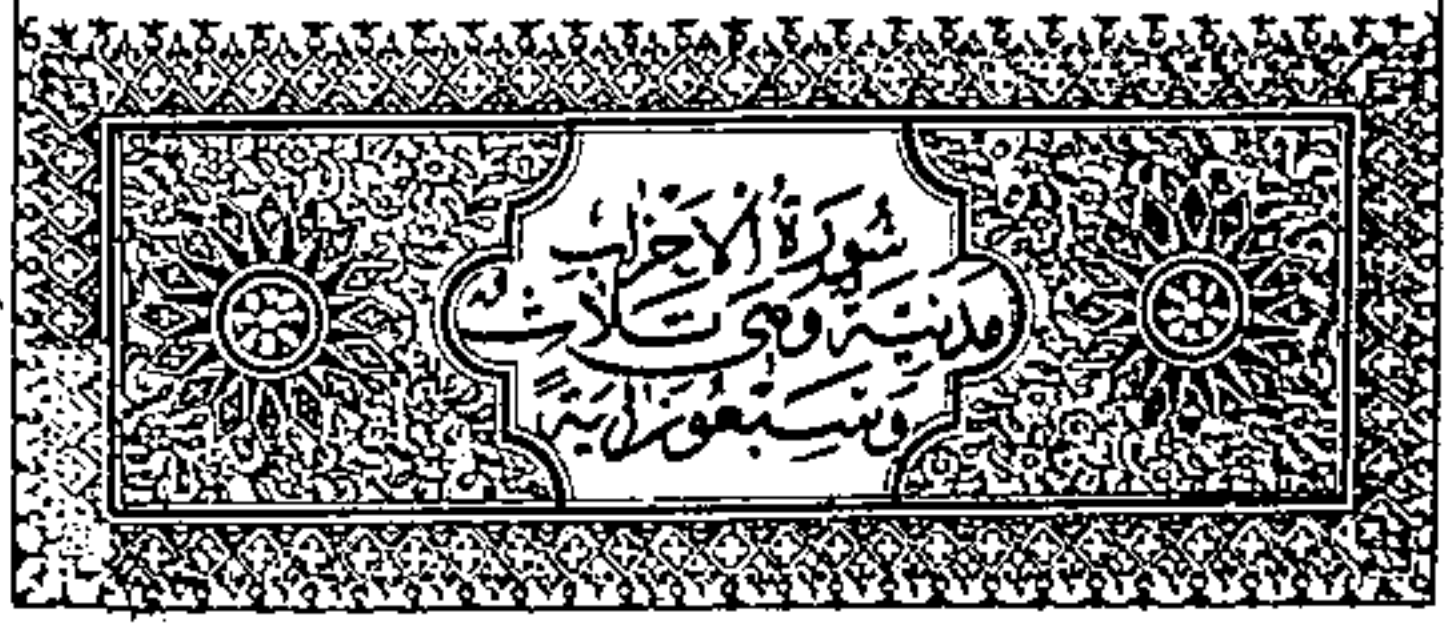 سُورَةُ الْأَحْزَابِ
مَدَنِيَّة وَهِيَ ثَلَاثٌ
وَسَبْعُونَ آيَةً